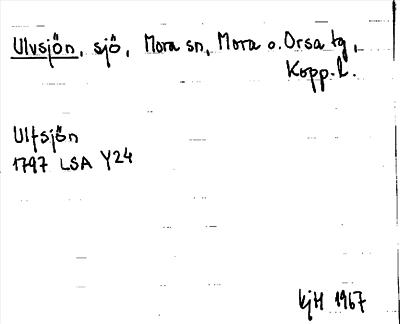 Ulvsjön, sjö, Mora sn, Mora o. Orsa tg,
Kopp. l.
Ulfsjön
1797 LSA Y24
kjH 1967